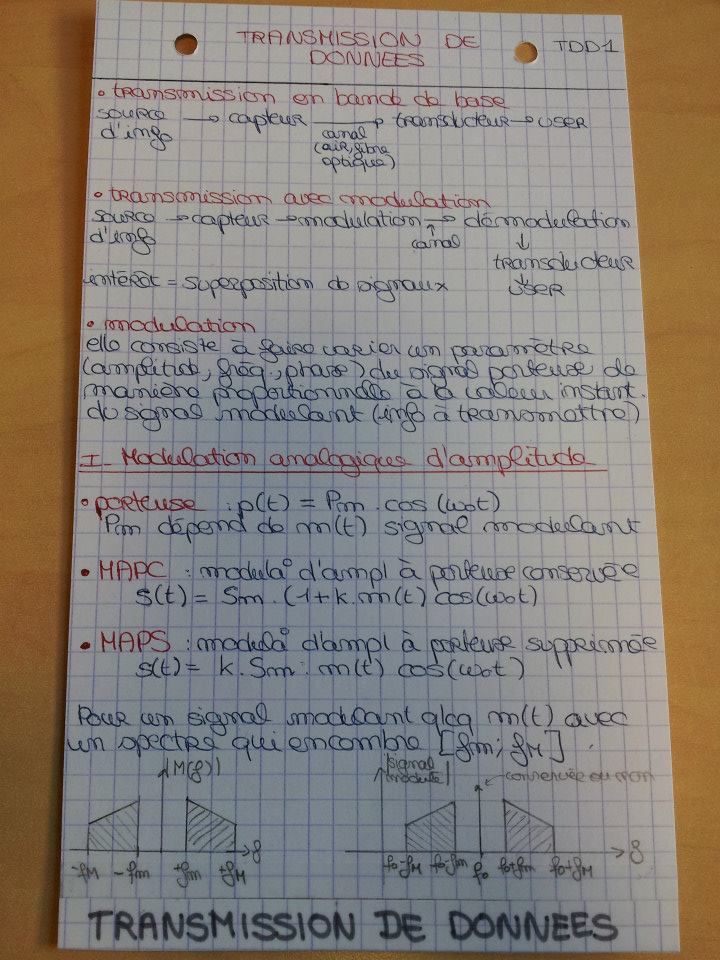 TRANSMISSION DE
DONNEES
TDD1
• transmission en bande de base
source → capteur → transducteur → USER
d'info
canal
(air, fibre
optique)
• transmission avec modulation
source → capteur → modulation → démodulation
d'info
↑
canal
↓
transducteur
↓
USER
intérêt = superposition de signaux
• modulation
elle consiste à faire varier un paramètre
(amplitude, fréq., phase) du signal porteuse de
manière proportionnelle à la valeur instant.
du signal modulant (info à transmettre)
I - Modulation analogique d'amplitude
• porteuse : p(t) = Pm . cos (ω0t)
Pm dépend de m(t) signal modulant
• MAPC : modula° d'ampl à porteuse conservée
s(t) = Sm . (1+k.m(t) cos(ω0t)
• MAPS : modula° d'ampl à porteuse supprimée
s(t) = k . Sm . m(t) cos(ω0t)
Pour un signal modulant qlcq m(t) avec
un spectre qui encombre [fm ; fM] .
|M(f)|
-fM -fm +fm +fM → f
|signal
modulé|
conservée ou non
f0-fM f0-fm f0 f0+fm f0+fM → f
TRANSMISSION DE DONNEES